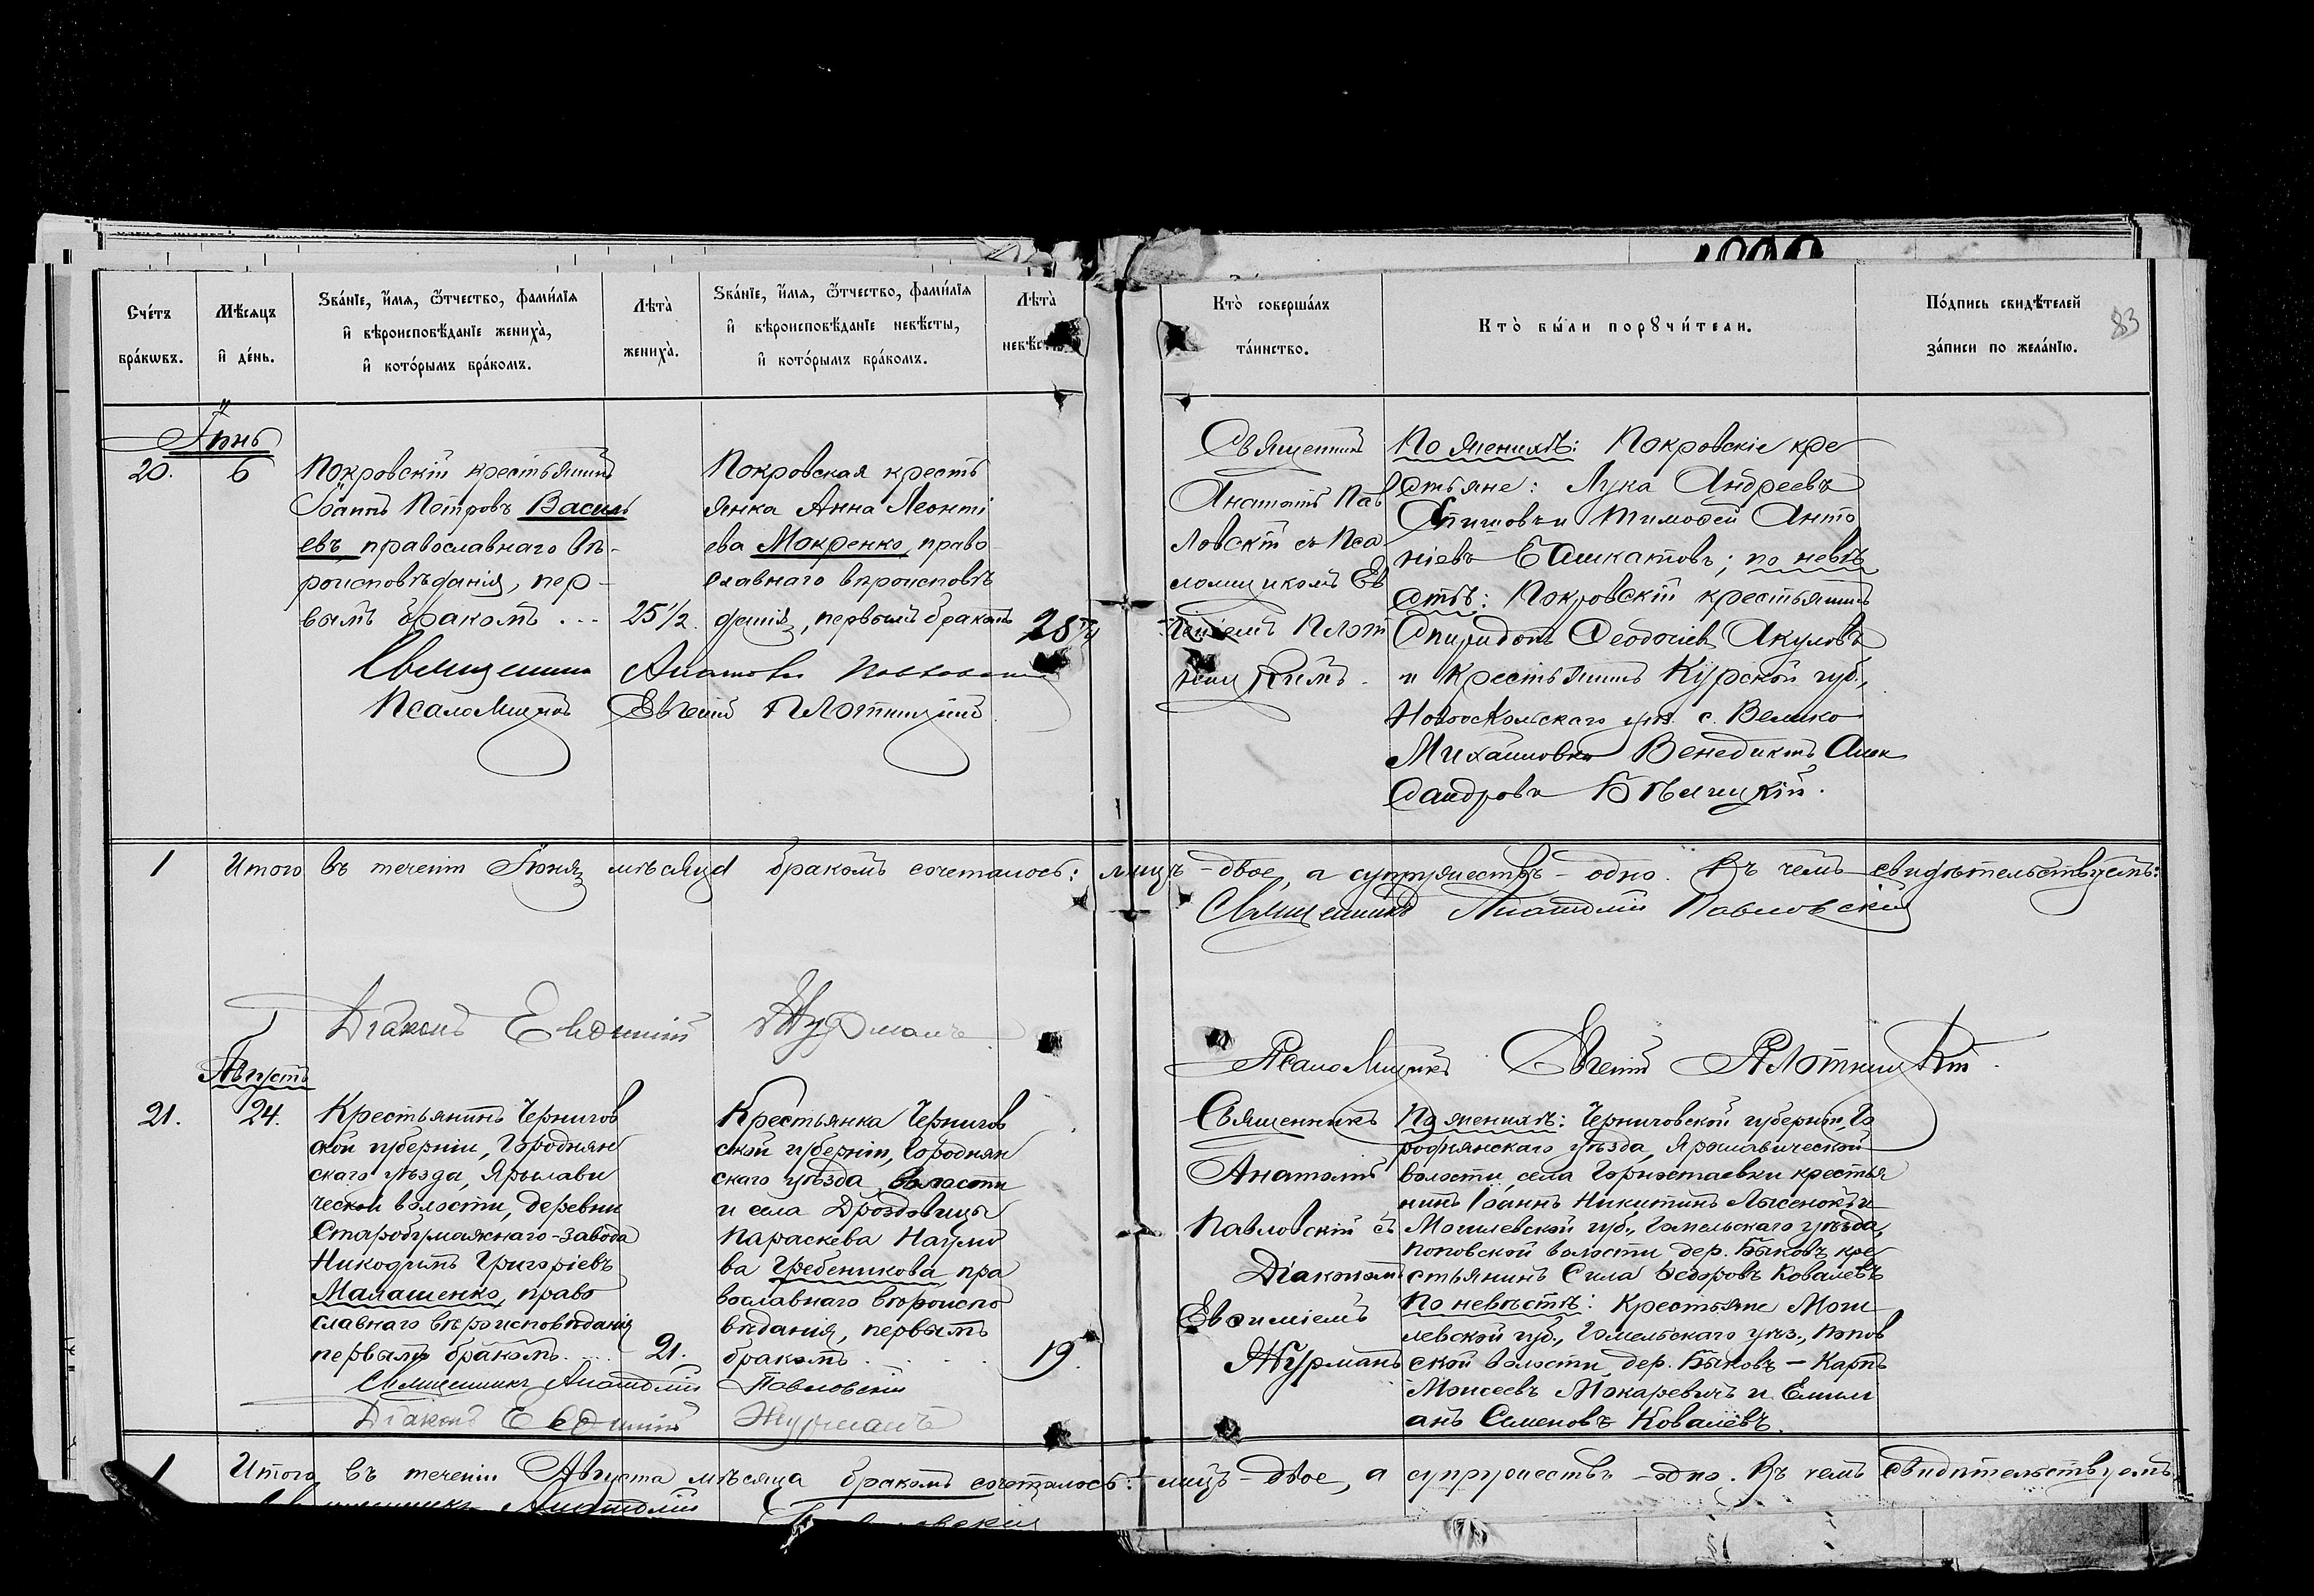 Счетъ
браковъ.
Мѣсяцъ
и день.
Званіе, имя, отчество, фамилія
и вѣроисповѣданіе жениха,
и которымъ бракомъ.
Лѣта
жениха.
Званіе, имя, отчество, фамилія
и вѣроисповѣданіе невѣсты,
и которымъ бракомъ.
Лѣта
Кто совершалъ
таинство.
Кто были поручители.
Подпись свидѣтелей
записи по желанію.
83
Іюнь
20.
6
Покровскій крестьянинъ
Іоаннъ Петровъ Василь
евъ, православнаго вѣ-
роисповѣданія, пер-
вымъ бракомъ ...
25 1/2
Покровская кресть
янка Анна Леонті
ева Мокренко, право
славнаго вѣроисповѣ
данія, первымъ бракомъ
Священникъ Анатолій Павловскій
Псаломщикъ Евгеній Плотницкій
Священникъ
Анатолій Пав
ловскій съ Пса
ломщикомъ Ев
геніемъ Плот
ницкимъ.
По женихѣ: Покровскіе кре
стьяне: Лука Андреевъ
и Тимофей Анто
ніевъ; по невѣ
стѣ: Покровскій крестьянинъ
Спиридонъ Феодосіевъ Акуловъ
и крестьянинъ Курской губ.,
Новооскольскаго уѣз. с. Велико
Михайловка Венедиктъ Алек
сандровъ
1
Итого въ теченіи Іюня мѣсяца бракомъ сочеталось: лицъ - двое, а супружествъ - одно. Въ чемъ свидѣтельствуемъ:
Священникъ Анатолій Павловскій
Діаконъ Евфимій Журманъ
Псаломщикъ Евгеній Плотницкій.
Августъ
21.
24.
Крестьянинъ Чернигов
ской губерніи, Городнян
скаго уѣзда, Ярылави
ческой волости, деревни
Старобумажнаго-завода
Никодимъ Григоріевъ
Малашенко, право
славнаго вѣроисповѣданія
первымъ бракомъ....
21.
Крестьянка Чернигов
ской губерніи, Городнян
скаго уѣзда, волости
и села Дроздовицы
Параскева Наумо
ва Гребеникова, пра
вославнаго вѣроиспо
вѣданія, первымъ
бракомъ....
19.
Священникъ Анатолій Павловскій
Діаконъ Евфимій Журманъ
Священникъ
Анатолій
Павловскій съ
Діакономъ
Евфиміемъ
Журманъ
По женихѣ: Черниговской губерніи, Го
роднянскаго уѣзда, Ярылавической
волости, села Горностаевки крестья
нинъ Іоаннъ Никитинъ Лысенокъ и
Могилевской губ., Гомельскаго уѣзда,
Поповской волости дер. Быковъ кре
стьянинъ Сила Ѳедоровъ Ковалевъ
По невѣстѣ: Крестьяне Моги
левской губ., Гомельскаго уѣз., Попов
ской волости, дер. Быковъ - Карпъ
Моисеевъ Макаревичъ и Емели
анъ Семеновъ Ковалевъ.
1
Итого въ теченіи Августа мѣсяца бракомъ сочеталось: лицъ - двое, а супружествъ - одно. Въ чемъ свидѣтельствуемъ
Анатолій